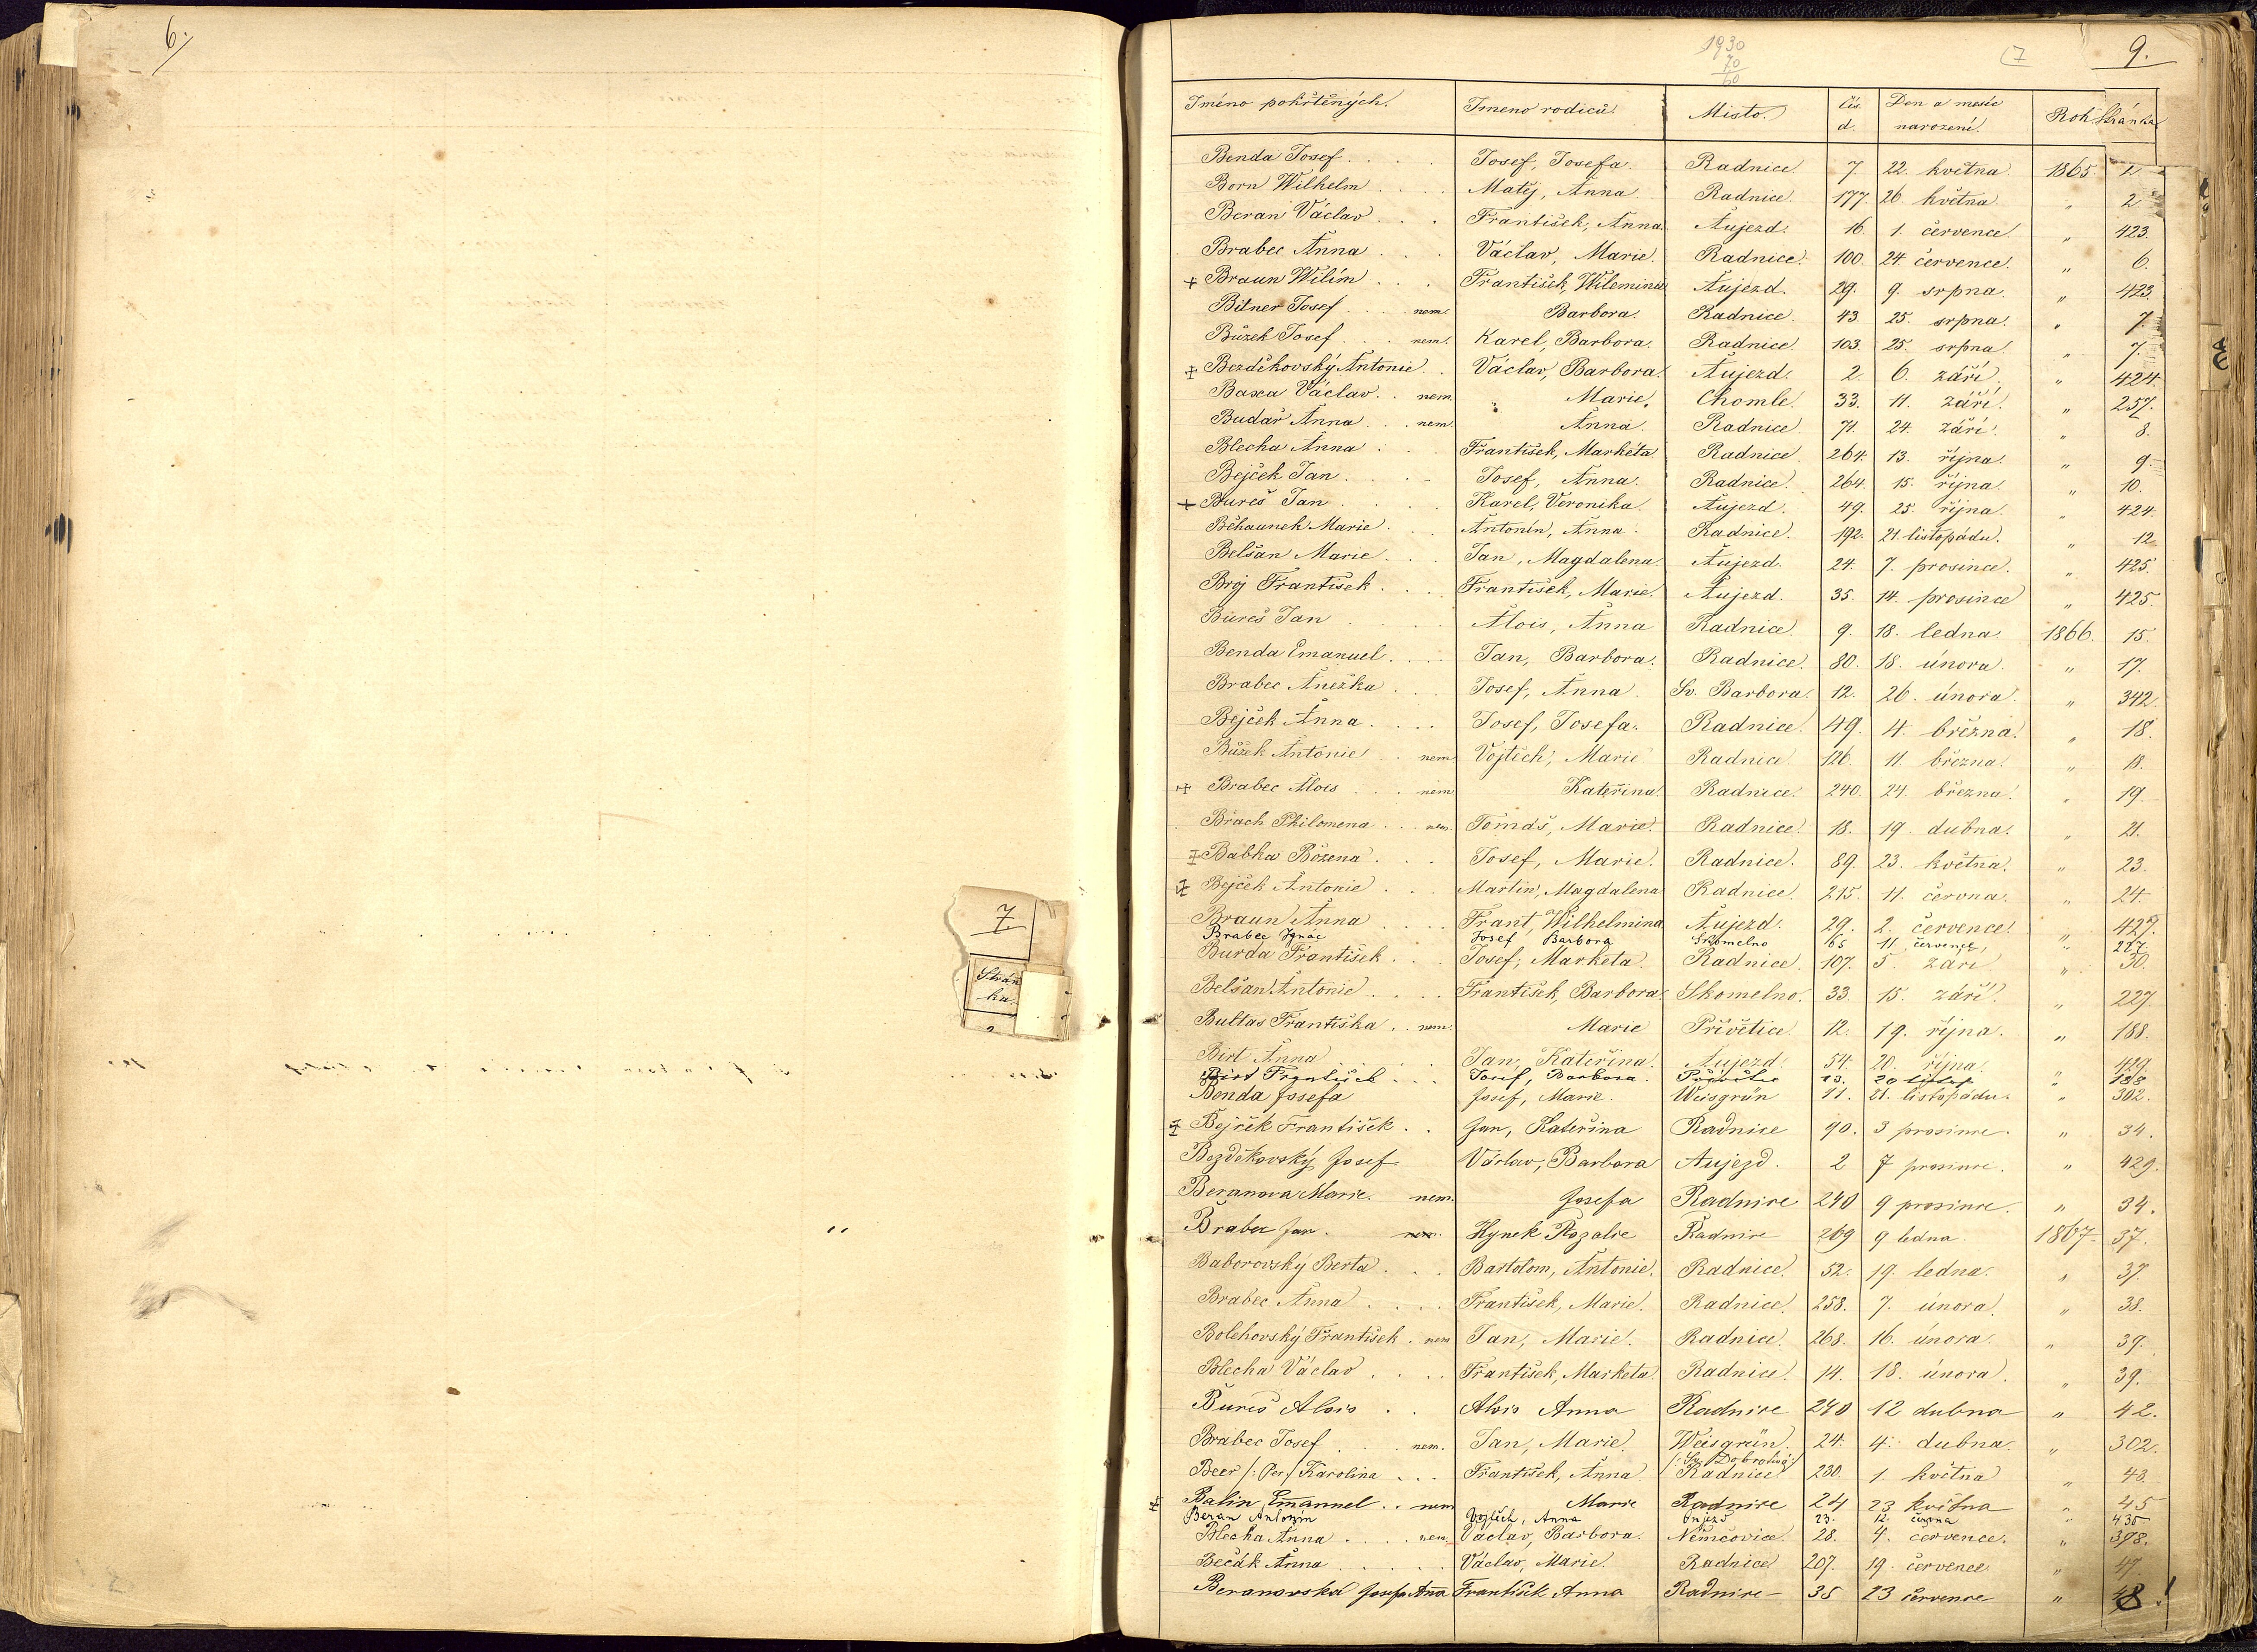 6.
7
Strán
ka.
1930
70
60
(7
9.
Jméno pokřtěných. Jmeno rodičů. Misto. Čís. d. Den a mesíc narození. Rok. Stránka
Benda Josef . . . . Josef, Josefa. Radnice 7 22. května 1865. 1
Born Wilhelm . . . . Matěj, Anna Radnice. 177. 26. května " 2
Beran Václav . . . František, Anna. Aujezd. 16. 1. července. " 423.
Brabec Anna . . . Václav, Marie. Radnice. 100. 24. července. " 6.
+ Braun Wilím . . . František, Wilemina Aujezd. 29. 9. srpna. " 423.
Bitner Josef . . . nem. Barbora. Radnice. 43. 25. srpna. " 7.
Bůzek Josef . . . nem. Karel, Barbora. Radnice. 103. 25. srpna " 7.
+ Bezděkovský Antonie . . Václav, Barbora. Aujezd. 2. 6. září " 424.
Baxa Václav . . nem. Marie. Chomle. 33. 11. září. " 257.
Budař Anna . . . nem. Anna. Radnice 71. 24. září. " 8.
Blecha Anna . . . František, Markéta. Radnice. 264. 13. října. " 9.
Bejček Jan . . . Josef, Anna. Radnice. 264. 15. října. " 10.
+ Bureš Jan . . . . Karel, Veronika. Aujezd. 49. 25. října. " 424.
Běhaunek Marie . . . Antonín, Anna. Radnice. 192. 21. listopádu. " 12.
Belšan Marie . . . Jan, Magdalena. Aujezd. 24. 7. prosince. " 425.
Broj František . . . František, Marie. Aujezd. 35. 14. prosince " 425.
Bureš Jan . . . . Alois, Anna Radnice. 9. 18. ledna 1866. 15.
Benda Emanuel . . . . Jan, Barbora. Radnice. 80. 18. února. " 17.
Brabec Anežka . . . Josef, Anna. Sv. Barbora. 12. 26. února. " 342.
Bejček Anna . . . . Josef, Josefa. Radnice. 49. 4. března. " 18.
Bůzek Antonie . . nem Vojtěch, Marie Radnice. 126. 11. března. " 18.
+ Brabec Alois . . . nem Kateřina. Radnice. 240. 24. března. " 19.
Brach Philomena . . . nem. Tomáš, Marie. Radnice. 18. 19. dubna. " 21.
+ Babka Božena . . . Josef, Marie. Radnice. 89. 23. května. " 23.
+ Bejček Antonie . . . Martin, Magdalena Radnice. 215. 11. června. " 24.
Braun Anna . . . . Frant, Wilhelmina Aujezd. 29. 2. července. " 427.
Brabec Ignác Josef Barbora Skomelno 65 11. července, " 227.
Burda František . . . Josef, Marketa. Radnice. 107. 5. září " 30.
Belšan Antonie . . . . František, Barbora. Skomelno. 33. 15. září. " 227
Bultas Františka . . nem. Marie Přivětice. 12. 19. října. " 188.
Birt Anna . . . . Jan, Kateřina. Aujezd. 54. 20. října. " 429.
Birt František . . . Josef, Barbora. 13. 20 listop. " 188
Bonda Josefa Josef, Marie. Weisgrün 11. 21. listopádu. " 302.
+ Bejček František . . Jan, Kateřina Radnice 90. 3 prosince. " 34.
Bezděkovský Josef Václav, Barbora Aujezd. 2 7 prosince. " 429.
Beranova Marie. nem. Josefa Radnice 240 9 prosince. " 34.
Brabec Jan. nem. Hynek Rozalie Radnice 269 9 ledna. 1867. 37.
Baborovský Berta . . . Bartolom, Antonie. Radnice. 52. 19. ledna. " 37.
Brabec Anna . . . . František, Marie. Radnice. 258. 7. února. " 38.
Bolehovský František . nem Jan, Marie. Radnice. 268. 16. února. " 39.
Blecha Václav . . . . František, Marketa. Radnice. 14. 18. února. " 39.
Bureš Alois . . Alois Anna Radnice 240 12 dubna " 42.
Brabec Josef . . . nem. Jan, Marie. Weisgrün. 24. 4. dubna. " 302.
/: Sv. Dobrotivá :/
Beer /: Per :/ Karolina . . . František, Anna. Radnice 230. 1. května " 43.
+ Balin Emanuel . . nem Marie Radnice 24 23 května " 45
Beran Antonín Vojtěch, Anna Oujezd 23. 12. června " 435.
Blecha Anna . . . . nem. Václav, Barbora. Němčovice. 28. 4. července. " 398.
Bečák Anna . . . . . Václav, Marie. Radnice 207. 19. července " 47.
Beranovská Josefa Anna František Anna Radnice 35 23 července " 48!